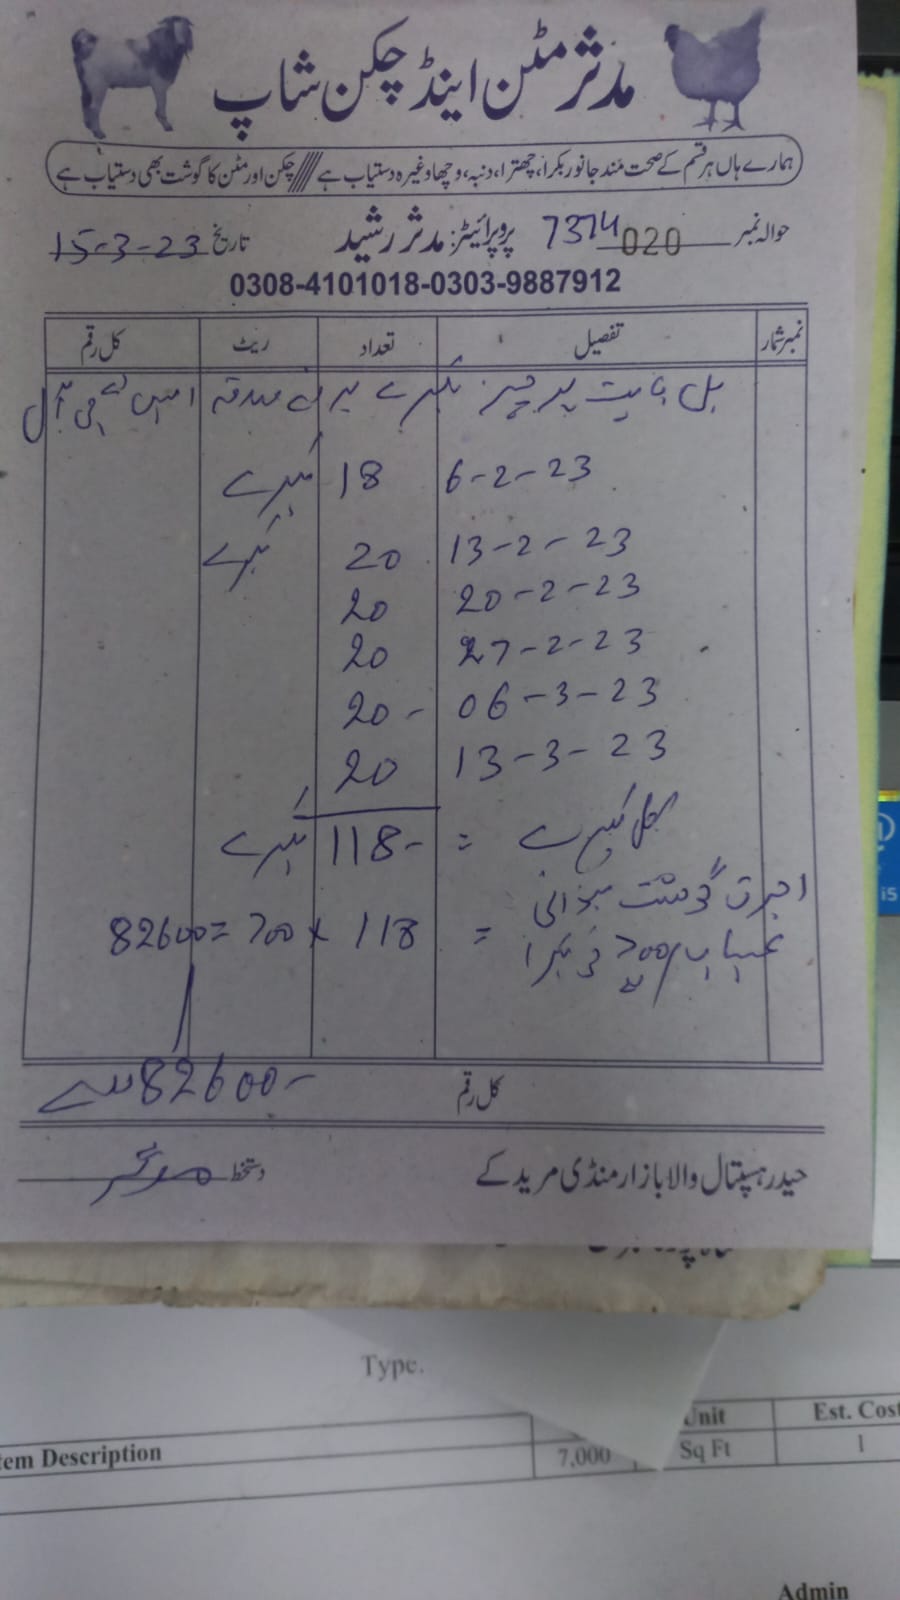 مدثر مٹن اینڈ چکن شاپ
ہمارے ہاں ہر قسم کے صحت مند جانور بکرا، چھترا، دنبہ، وچھا وغیرہ دستیاب ہے //// چکن اور مٹن کا گوشت بھی دستیاب ہے
حوالہ نمبر 020 7374 پروپرائیٹر: مدثر رشید تاریخ 15-3-23
0308-4101018-0303-9887912
نمبر شمار تفصیل تعداد ریٹ کل رقم
بل بابت پرچیز بکرے برائے صدقہ
6-2-23 18 بکرے
13-2-23 20 بکرے
20-2-23 20
27-2-23 20
06-3-23 20-
13-3-23 20
کل بکرے = 118- بکرے
اجرت گوشت بنوائی
بحساب 700/ فی بکرا = 118 x 700 = 82600
کل رقم 82600-
حیدر ہسپتال والا بازار منڈی مریدکے دستخط
Type.
tem Description Unit Est. Cost
7,000 Sq Ft 1
Admin